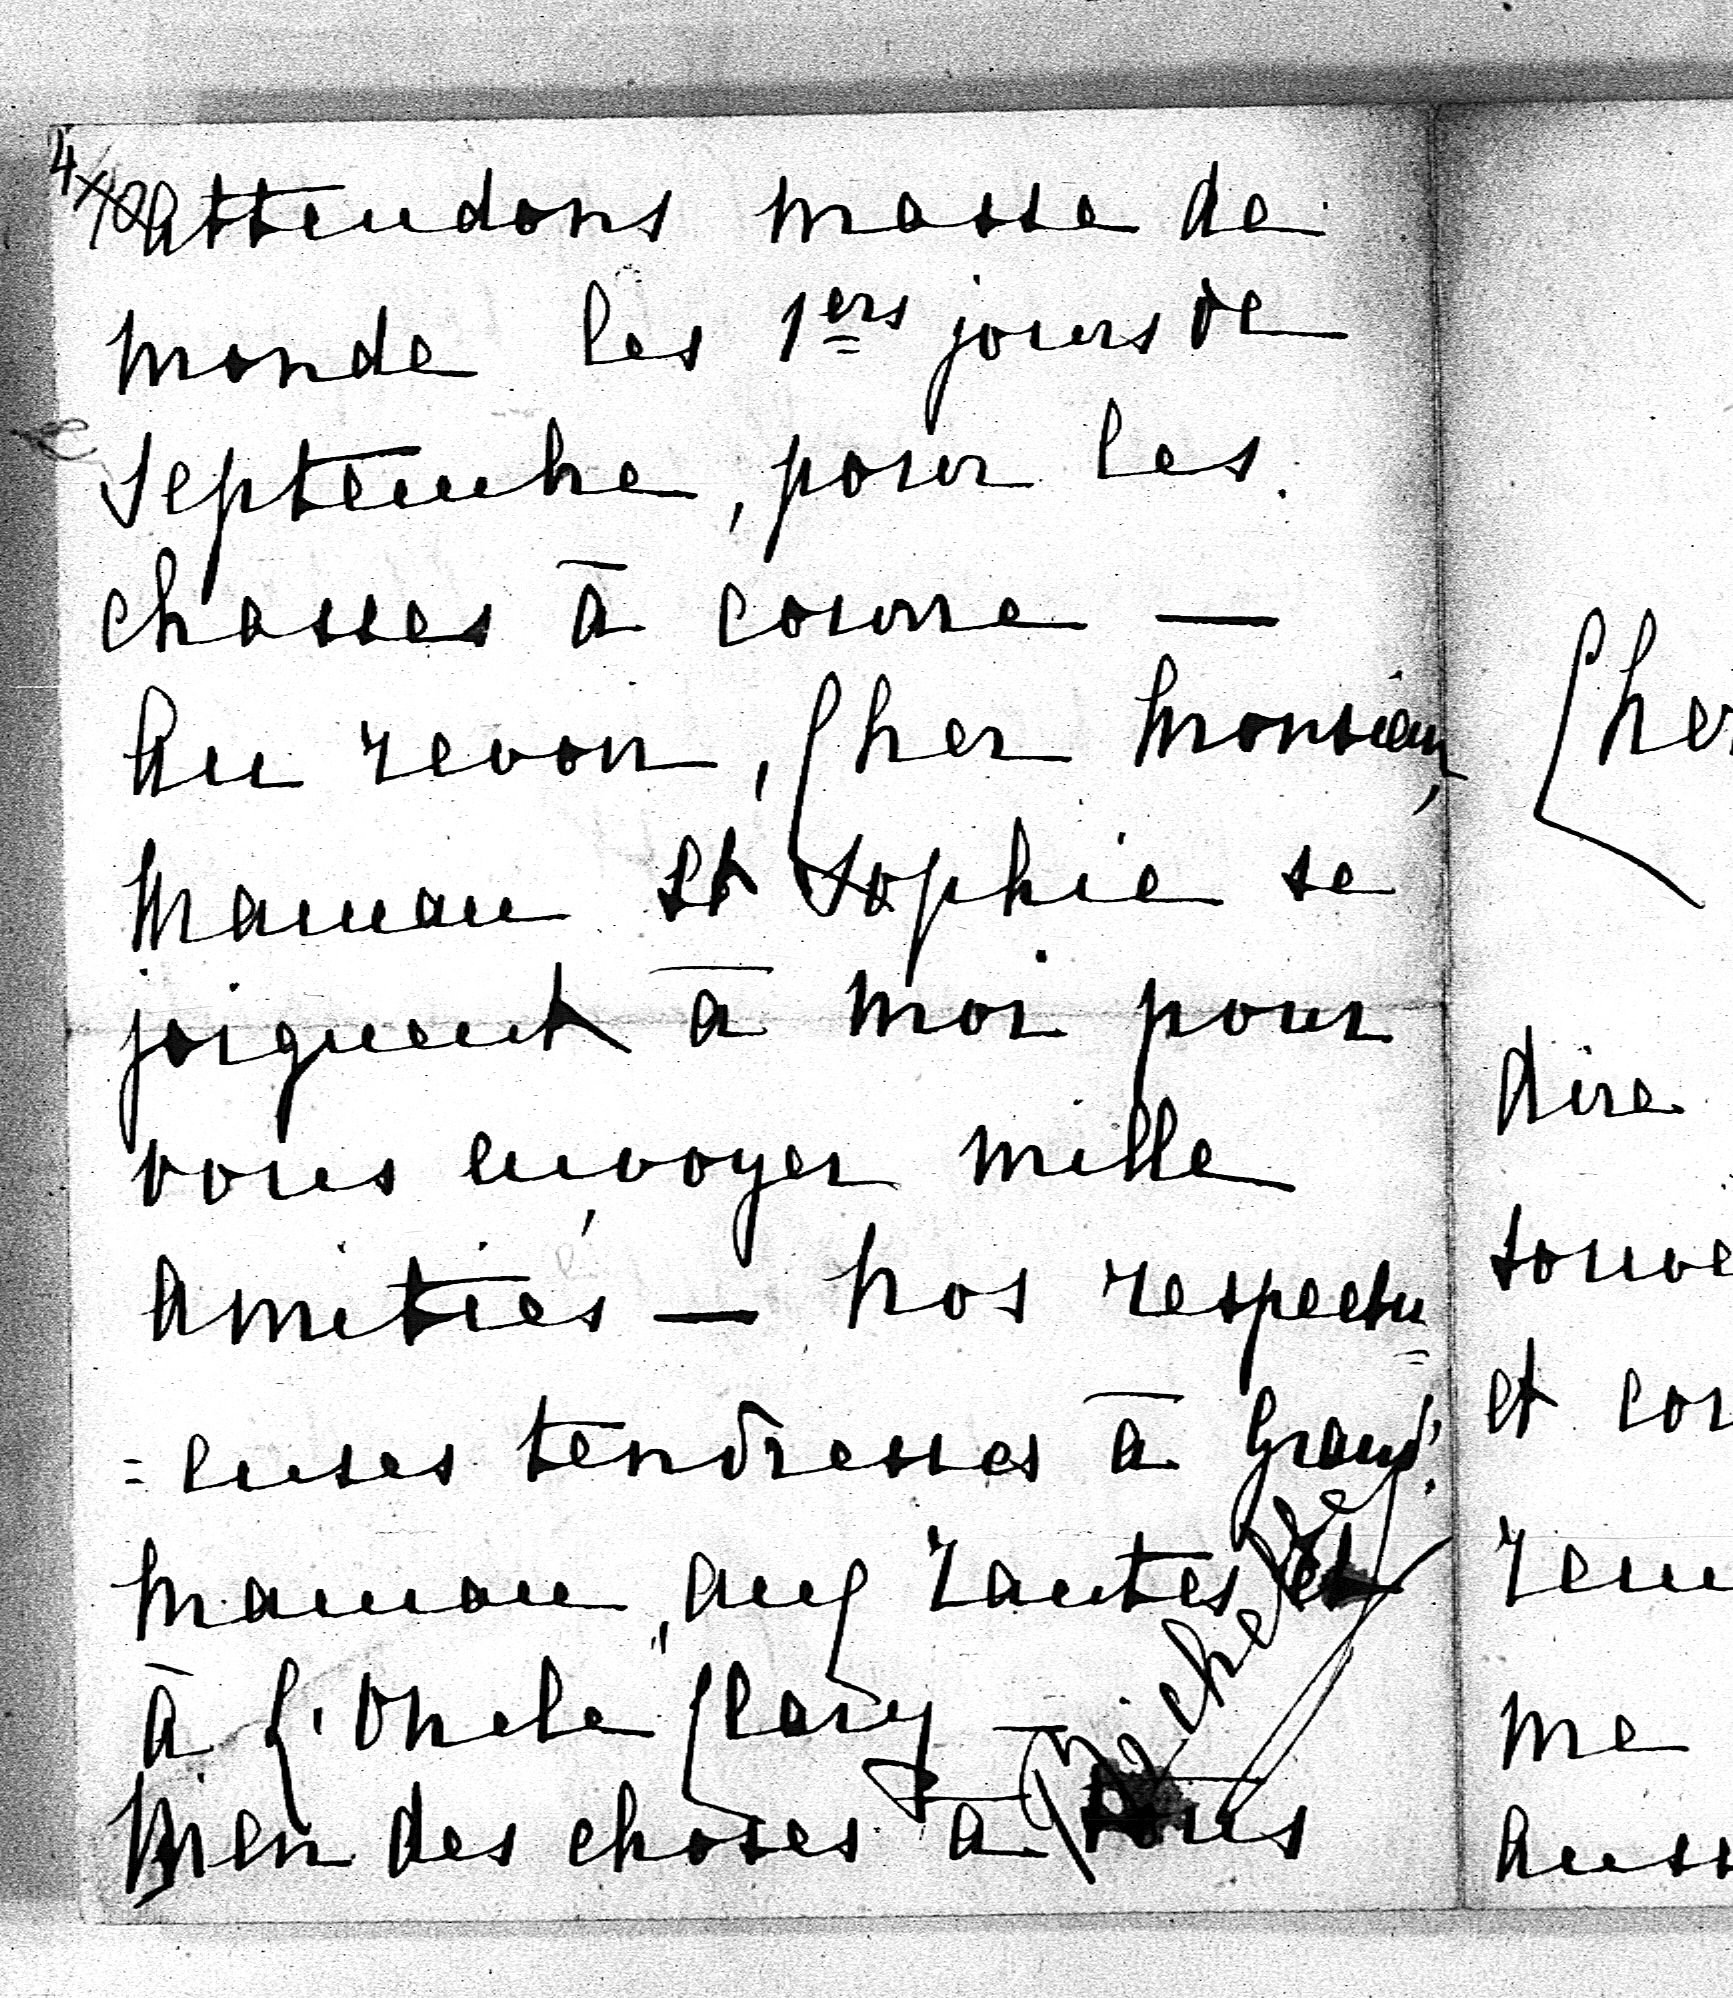 4
attendons masse de
monde les 1ers jours de
Septembre, pour les
chasses à courre —
Au revoir, Cher Monsieur,
Maman et Sophie se
joignent à moi pour
vous envoyer mille
amitiés — Nos respectu
=euses tendresses à Grand'
Maman, aux Tantes et
à l'Oncle Clary —
Bien des choses à tous
Michelle
Cher
dire
souve
et cor
me
auss